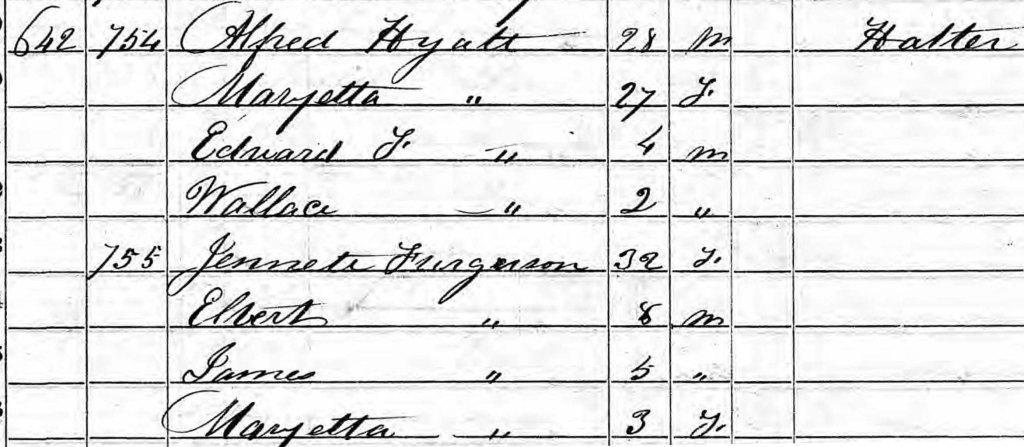 642 754 Alfred Hyatt 28 m Hatter
Maryetta " 27 F.
Edward F. " 4 m
Wallace " 2 "
755 Jennete Furgerson 32 F.
Elbert " 8 m
James " 5 "
Maryetta " 3 F.